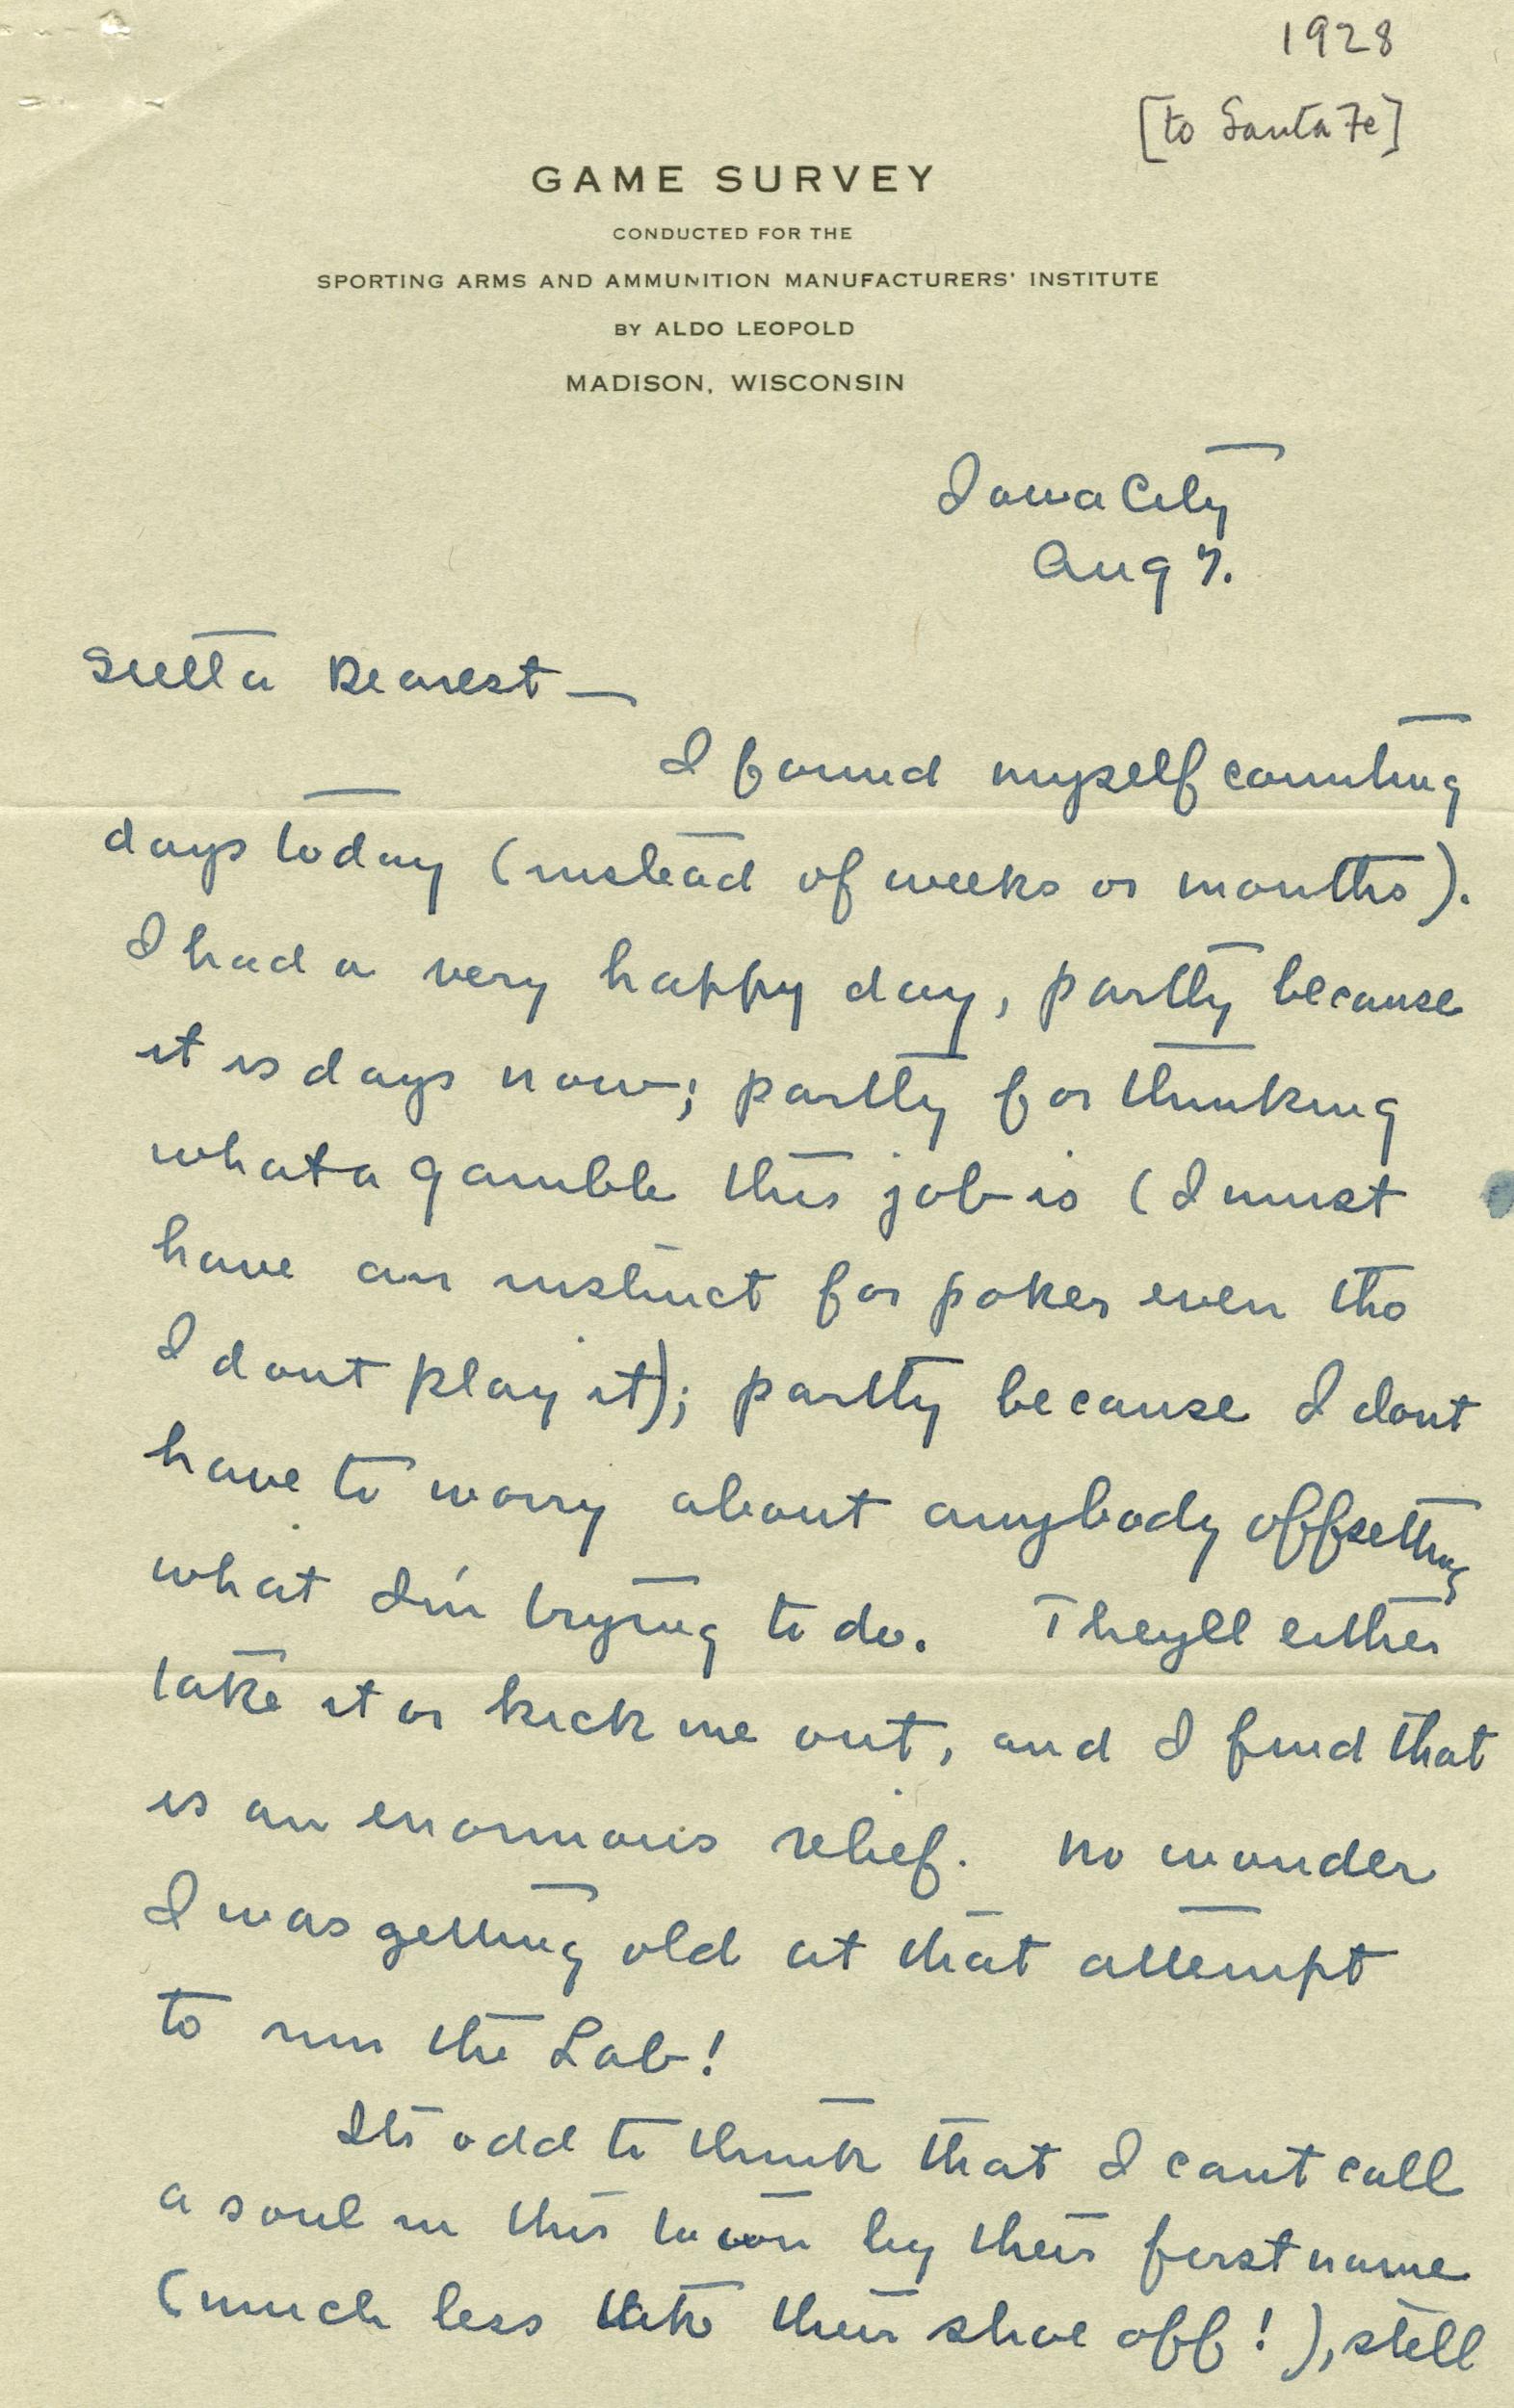 1928
[to Santa Fe]
GAME SURVEY
CONDUCTED FOR THE
SPORTING ARMS AND AMMUNITION MANUFACTURERS' INSTITUTE
BY ALDO LEOPOLD
MADISON, WISCONSIN
Iowa City
Aug 7.
Dearest —
I found myself counting
days today (instead of weeks or months).
I had a very happy day, partly because
it is days now; partly for thinking
what a gamble this job is (I must
have an instinct for poker even tho
I dont play it); partly because I dont
have to worry about anybody offsetting
what I'm trying to do. Theyll either
take it or kick me out, and I find that
is an enormous relief. No wonder
I was getting old at that attempt
to run the Lab!
Its odd to think that I cant call
a soul in this town by their first name
(much less take their shoe off!), still